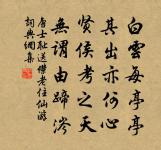 白雲每亭亭
其出亦何心
賢侯考之天
無謂由蹄涔
唐士耻送傑老住仙游
詞典網集